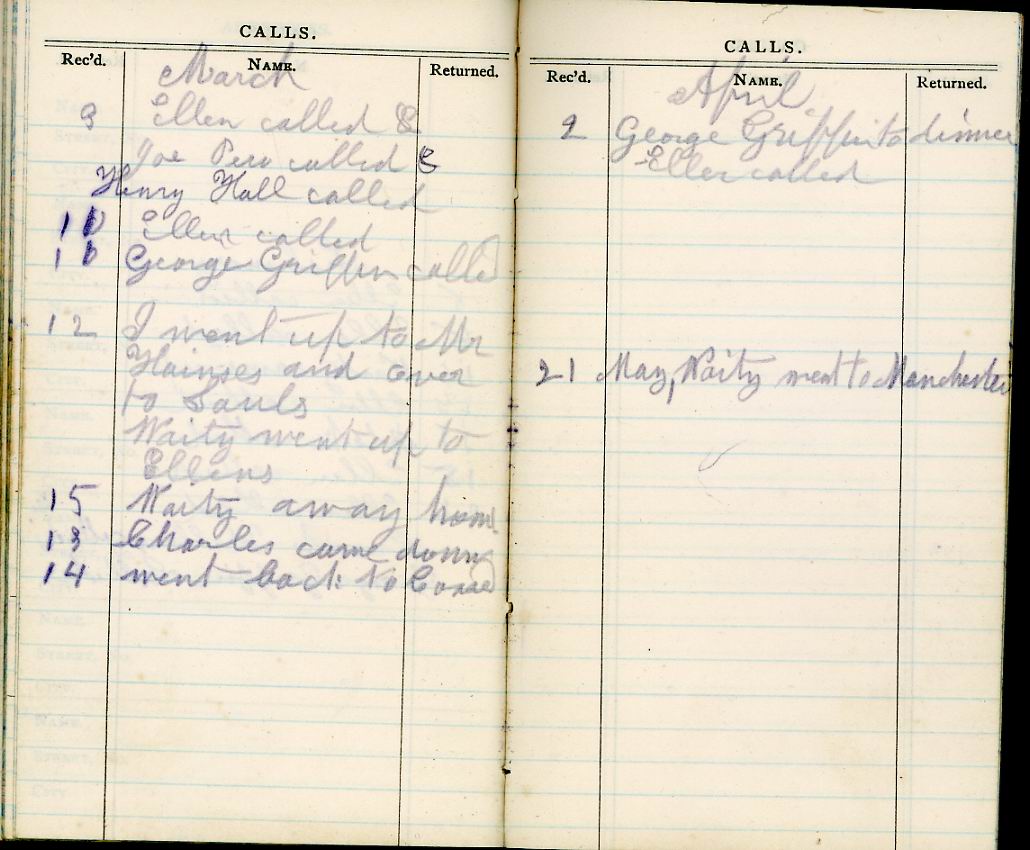 CALLS.
Rec'd. NAME. Returned.
March
9 Ellen called &
Joe called &
Henry Hall called
10 Ellen called
10 George Griffin called
12 I went up to Mr
Hainses and over
to Sauls
Waity went up to
Ellens
15 Waity away home
13 Charles came down
14 went back to
CALLS.
Rec'd. NAME. Returned.
April
2 George Griffin to dinner
Ellen called
21 May, Waity went to Manchester